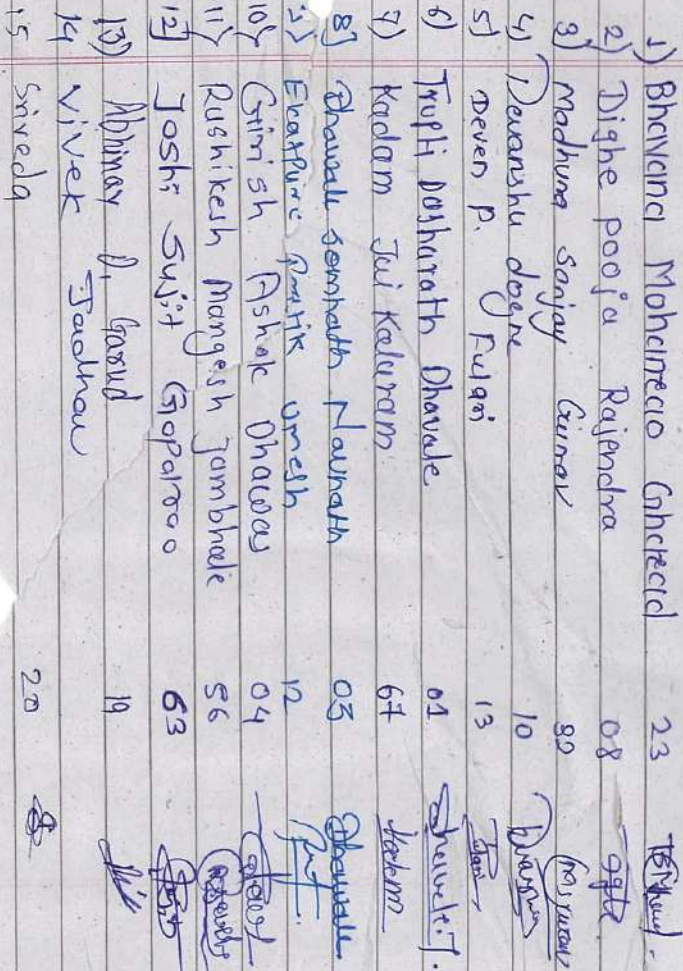 1) Bhavana Mohanrao Gharad 23
2) Dighe Pooja Rajendra 08
3) Madhura Sanjay Gurav 32
4) Devanshu dogre 10
5) Deven P. Fulari 13
6) Trupti Dasharath Dhavale 01 Dhavale.T.
7) Kadam Jui Kaluram 67 Kadam
8] Dhawale Somnath Navnath 03 Dhawale
9) Ekatpure Pratik Umesh 12
10) Girish Ashok Dhawas 04
11) Rushikesh Mangesh Jambhale 56
12] Joshi Sujit Goparao 63
13) Abhinav D. Garud 19
14 Vivek Jadhav
15 Sriveda 20